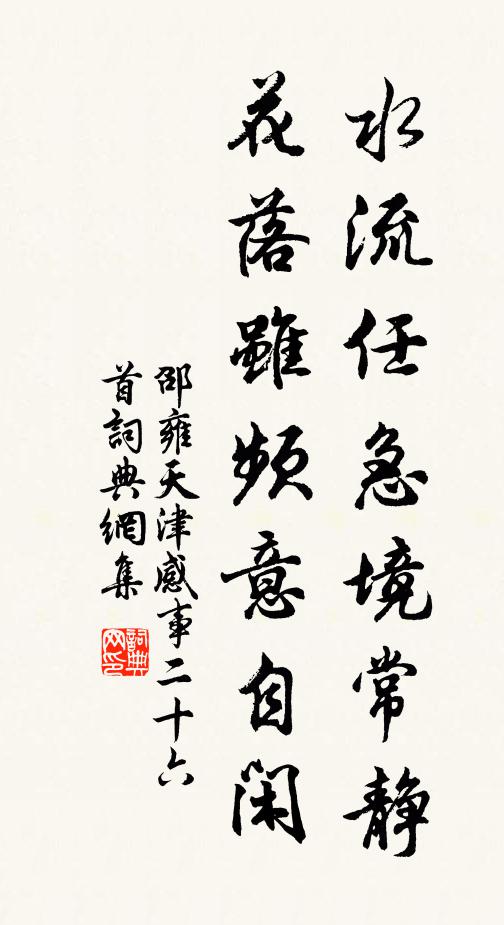 水流任急境常靜
花落雖頻意自閑
邵雍天津感事二十六
首詞典網集
詞典网印